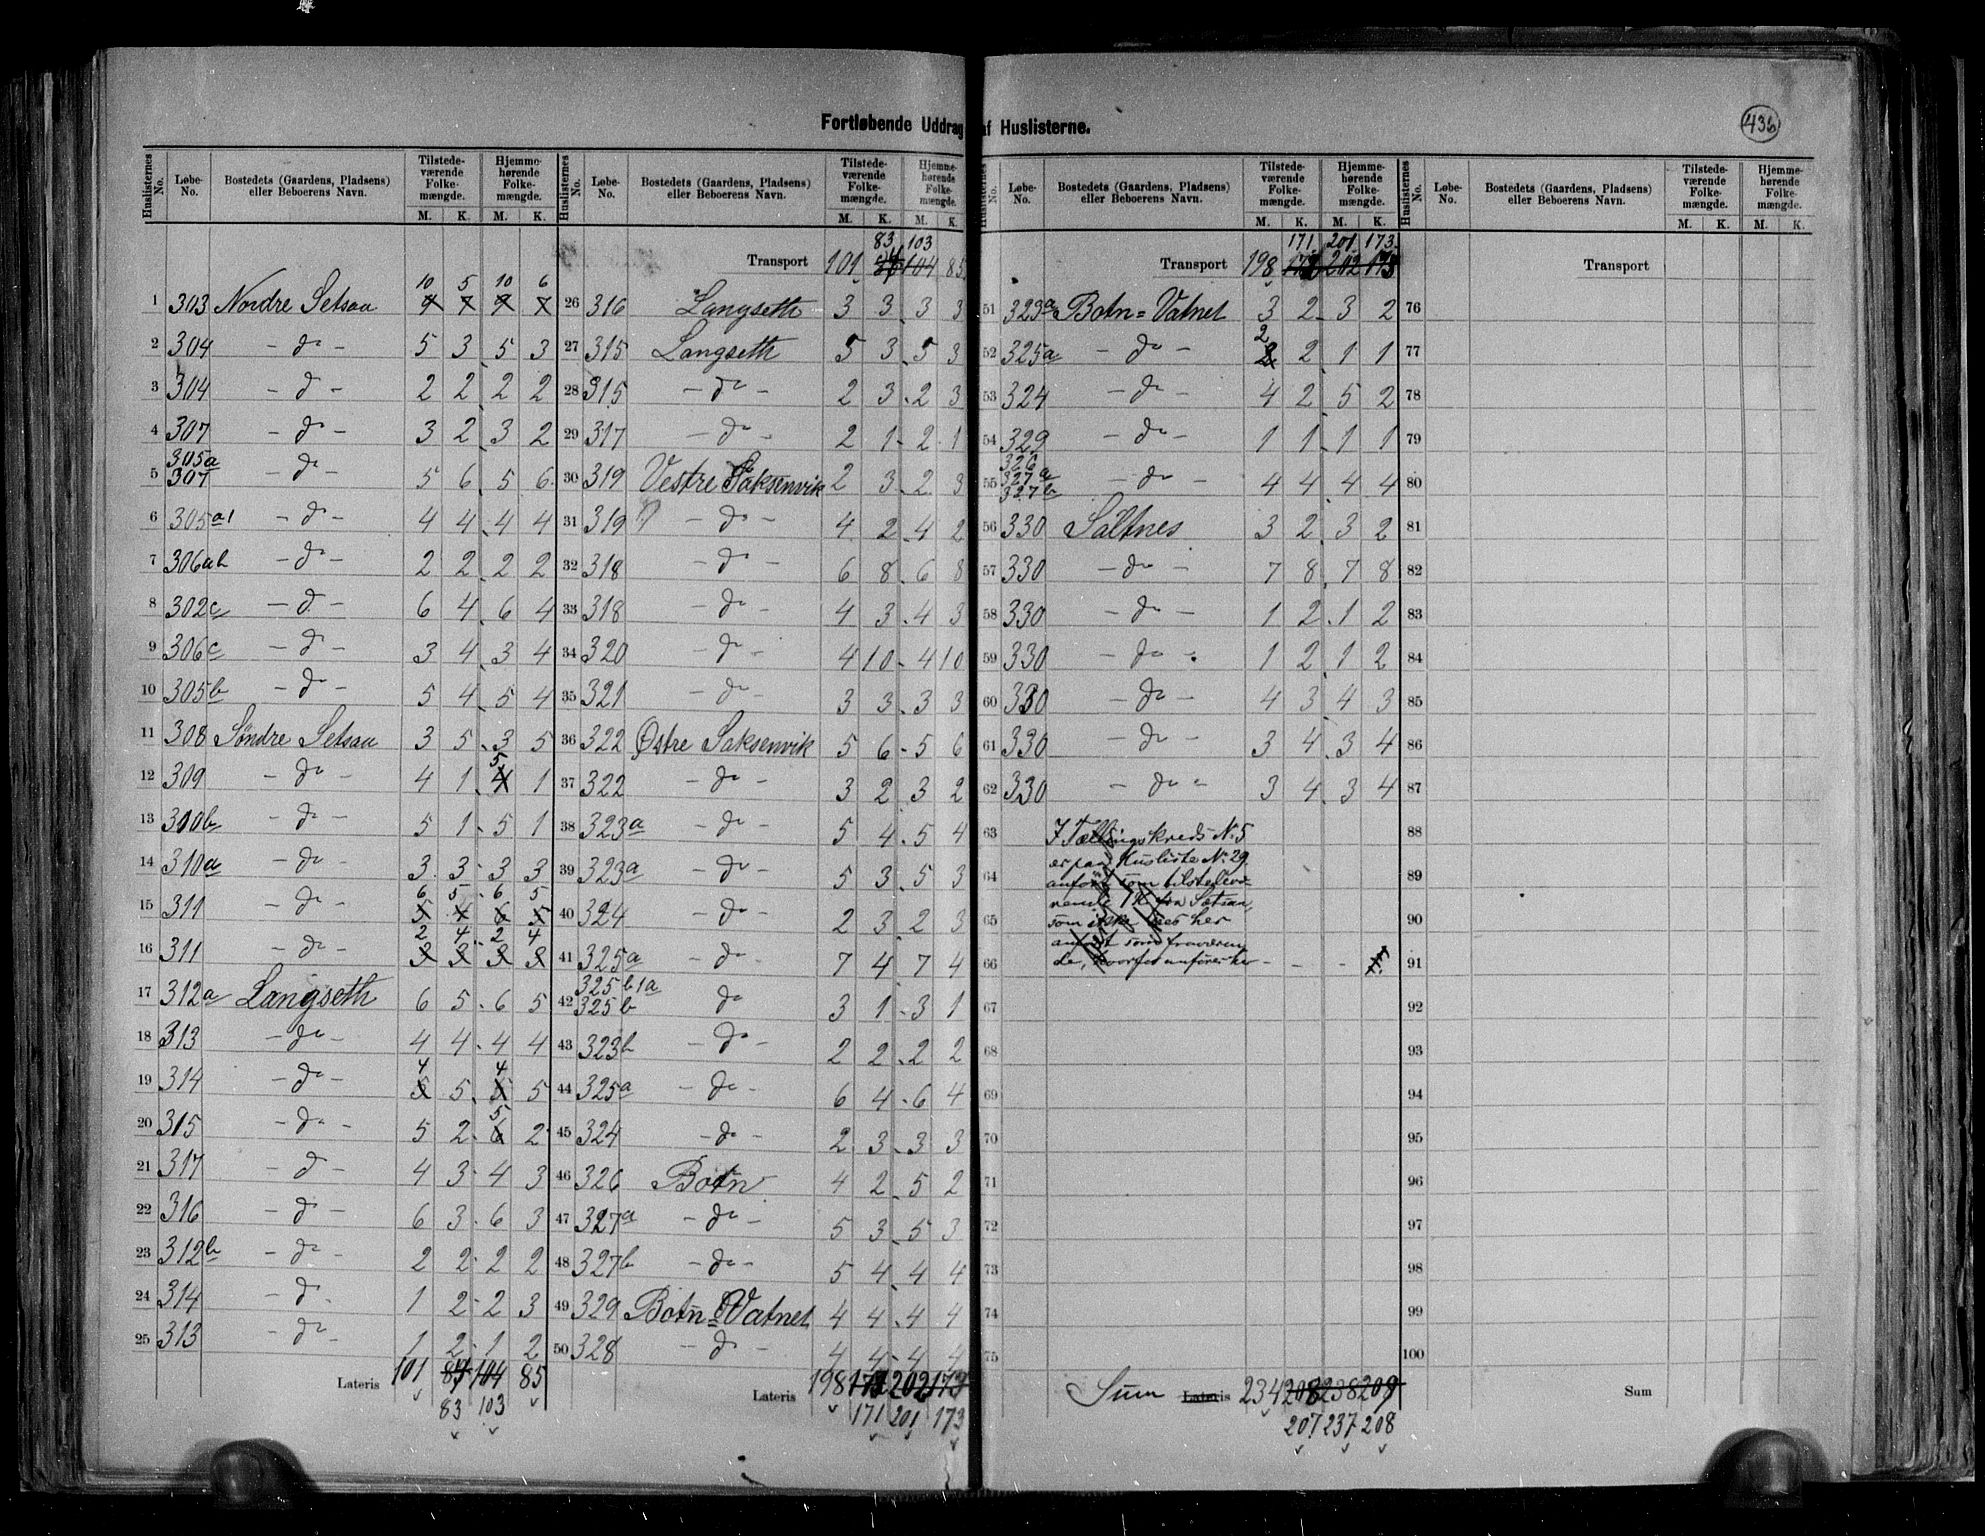 Fortløbende Uddrag af Huslisterne.
436
Huslisternes No. | Løbe-No. | Bostedets (Gaardens, Pladsens) eller Beboerens Navn. | Tilstedeværende Folkemængde. M. K. | Hjemmehørende Folkemængde. M. K.
1 303 Nordre Setsaa 10 5 10 6
2 304 - do - 5 3 5 3
3 304 - do - 2 2 2 2
4 307 - do - 3 2 3 2
5 305a 307 - do - 5 6 5 6
6 305a1 - do - 4 4 4 4
7 306ab - do - 2 2 2 2
8 302c - do - 6 4 6 4
9 306c - do - 3 4 3 4
10 305b - do - 5 4 5 4
11 308 Søndre Setsaa 3 5 3 5
12 309 - do - 4 1 4 5 1
13 300b - do - 5 1 5 1
14 310a - do - 3 3 3 3
15 311 - do - 5 6 4 5 6 6 5 5
16 311 - do - 3 2 3 4 3 2 3 4
17 312a Langseth 6 5 6 5
18 313 - do - 4 4 4 4
19 314 - do - 5 4 5 5 4 5
20 315 - do - 5 2 6 5 2
21 317 - do - 4 3 4 3
22 316 - do - 6 3 6 3
23 312b - do - 2 2 2 2
24 314 - do - 1 2 2 3
25 313 - do - 1 2 1 2
Lateris 101 84 104 85
83 103
Huslisternes No. | Løbe-No. | Bostedets (Gaardens, Pladsens) eller Beboerens Navn. | Tilstedeværende Folkemængde. M. K. | Hjemmehørende Folkemængde. M. K.
83 103
Transport 101 84 104 85
26 316 Langseth 3 3 3 3
27 315 Langseth 5 3 5 3
28 315 - do - 2 3 2 3
29 317 - do - 2 1 2 1
30 319 Vestre Saksenvik 2 3 2 3
31 319 - do - 4 2 4 2
32 318 - do - 6 8 6 8
33 318 - do - 4 3 4 3
34 320 - do - 4 10 4 10
35 321 - do - 3 3 3 3
36 322 Østre Saksenvik 5 6 5 6
37 322 - do - 3 2 3 2
38 323a - do - 5 4 5 4
39 323a - do - 5 3 5 3
40 324 - do - 2 3 2 3
41 325a - do - 7 4 7 4
42 325b1a 325b do 3 1 3 1
43 323b - do - 2 2 2 2
44 325a - do - 6 4 6 4
45 324 - do - 2 3 3 3
46 326 Botn 4 2 5 2
47 327a - do - 5 3 5 3
48 327b - do - 5 4 4 4
49 329 Botn=Vatnet 4 4 4 4
50 328 - do - 4 4 4 4
Lateris 198 172 202 173
171 201 173
Huslisternes No. | Løbe-No. | Bostedets (Gaardens, Pladsens) eller Beboerens Navn. | Tilstedeværende Folkemængde. M. K. | Hjemmehørende Folkemængde. M. K.
171 201 173
Transport 198 172 202 173
51 323a Botn=Vatnet 3 2 3 2
52 325a - do - 2 2 1 1
53 324 - do - 4 2 5 2
54 329 - do - 1 1 1 1
55 326 327a 327b - do - 4 4 4 4
56 330 Saltnes 3 2 3 2
57 330 - do - 7 8 7 8
58 330 - do - 1 2 1 2
59 330 - do - 1 2 1 2
60 330 - do - 4 3 4 3
61 330 - do - 3 4 3 4
62 330 - do - 3 4 3 4
63 I Tællingskreds No 5
er paa Husliste No 29
64 anført som tilstedevæ-
rende 1 K fra Setsaa,
65 som ikke sees her
anført som fraværen
66 de, hvorfor anføres her - - - 1
67
68
69
70
71
72
73
74
75
Sum Lateris 234 208 238 209
207 237 208
Huslisternes No. | Løbe-No. | Bostedets (Gaardens, Pladsens) eller Beboerens Navn. | Tilstedeværende Folkemængde. M. K. | Hjemmehørende Folkemængde. M. K.
Transport
76
77
78
79
80
81
82
83
84
85
86
87
88
89
90
91
92
93
94
95
96
97
98
99
100
Sum